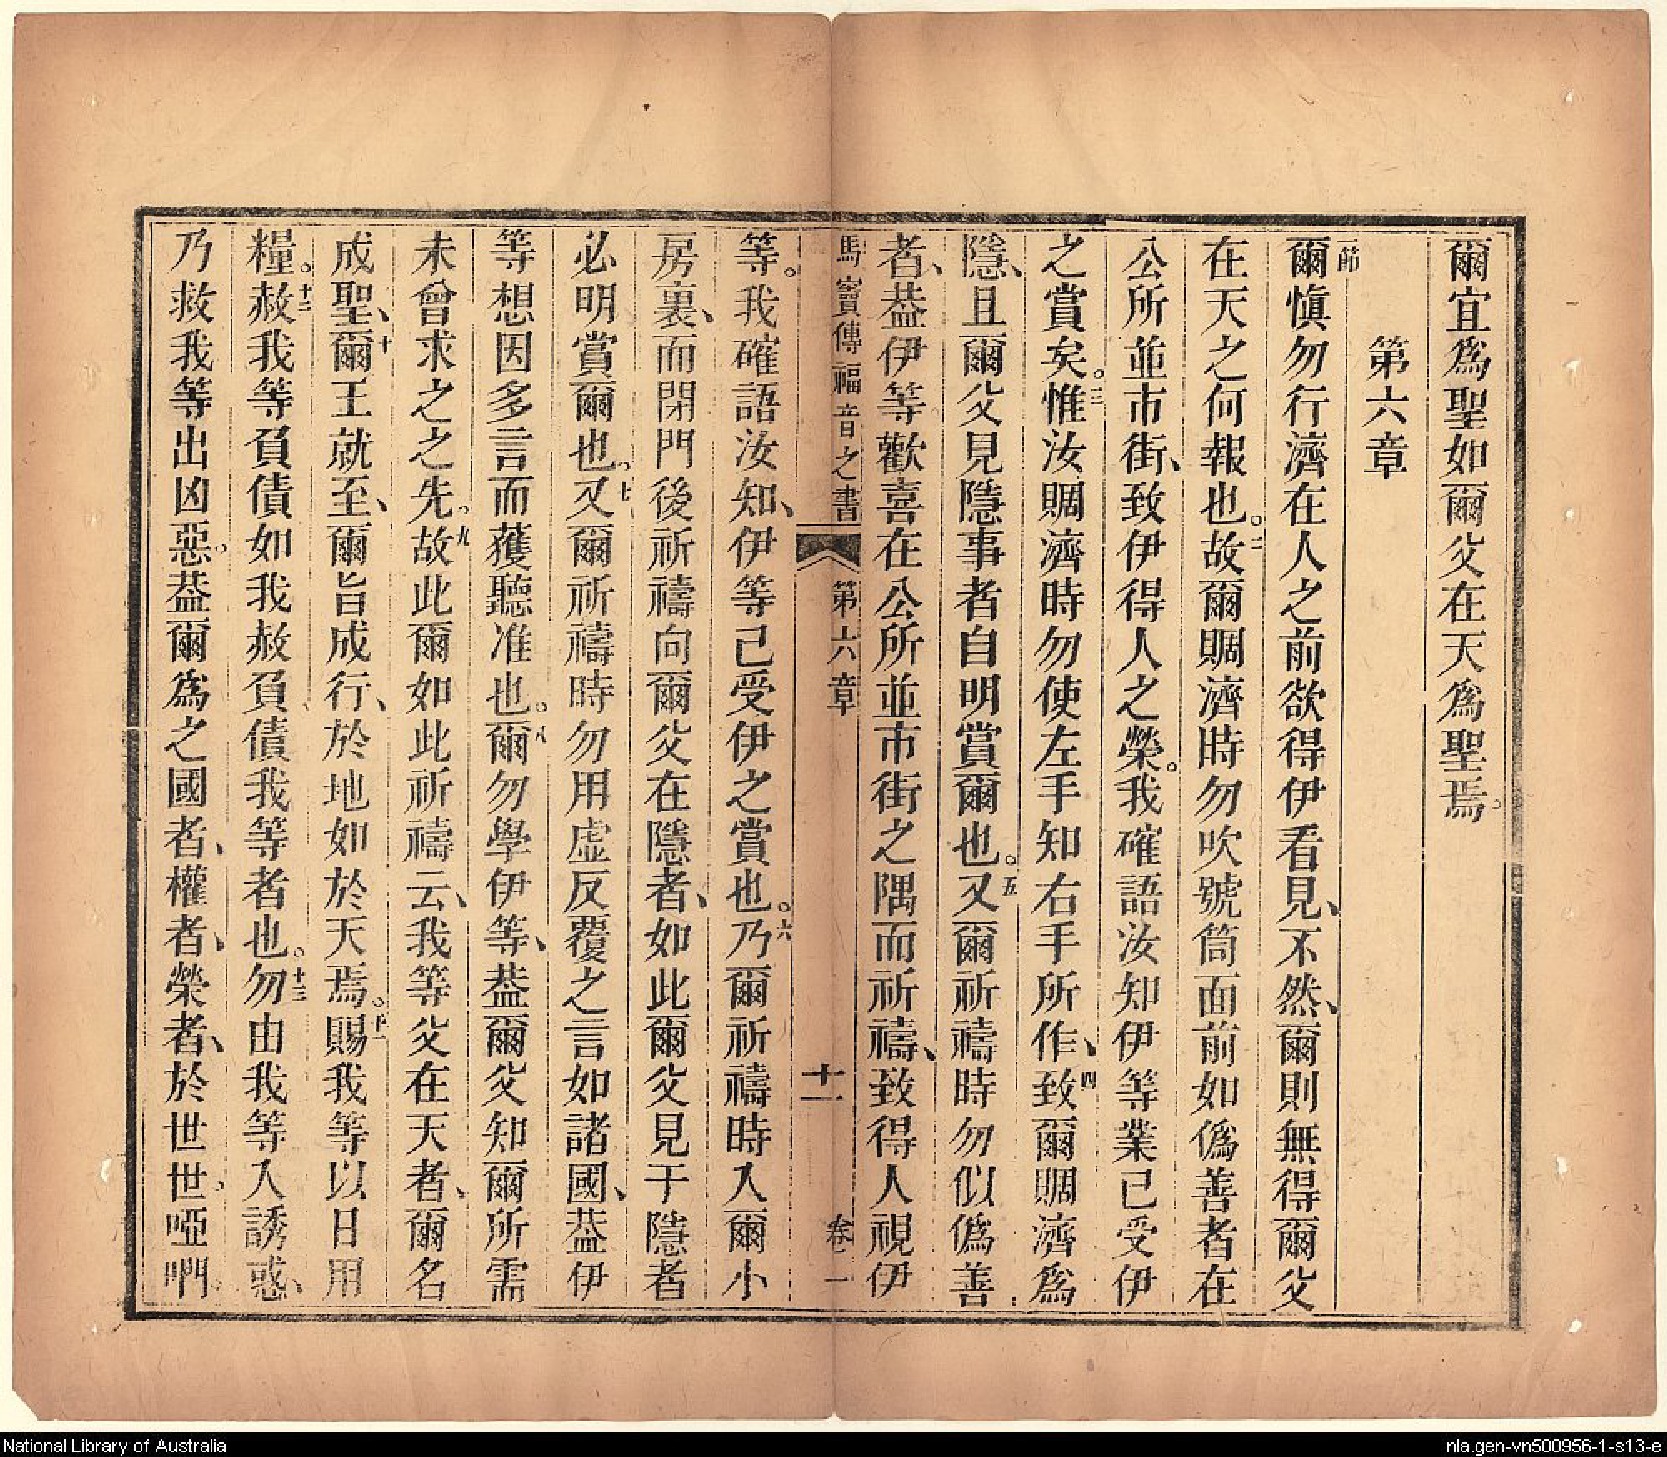 爾宜爲聖如爾父在天爲聖焉。
第六章
節
爾愼勿行濟在人之前欲得伊看見、不然、爾則無得爾父
在天之何報也。二故爾賙濟時勿吹號筒面前如僞善者在
公所並市街、致伊得人之榮。我確語汝知伊等業已受伊
之賞矣。三惟汝賙濟時勿使左手知右手所作、四致爾賙濟爲
隱、且爾父見隱事者自明賞爾也。五又爾祈禱時勿似僞善
者、葢伊等歡喜在公所並市街之隅而祈禱、致得人視伊
馬竇傳福音之書 第六章 十一 卷一
等。我確語汝知、伊等已受伊之賞也。六乃爾祈禱時入爾小
房裏、而閉門後祈禱向爾父在隱者、如此爾父見于隱者
必明賞爾也。七又爾祈禱時勿用虛反覆之言如諸國、葢伊
等想因多言而獲聽准也。八爾勿學伊等、葢爾父知爾所需
未曾求之之先。九故此爾如此祈禱云、我等父在天者、爾名
成聖、十爾王就至、爾旨成行、於地如於天焉。十一賜我等以日用
糧。十二赦我等負債如我赦負債我等者也。十三勿由我等入誘惑、
乃救我等出凶惡。葢爾爲之國者、權者、榮者、於世世。啞㗎。